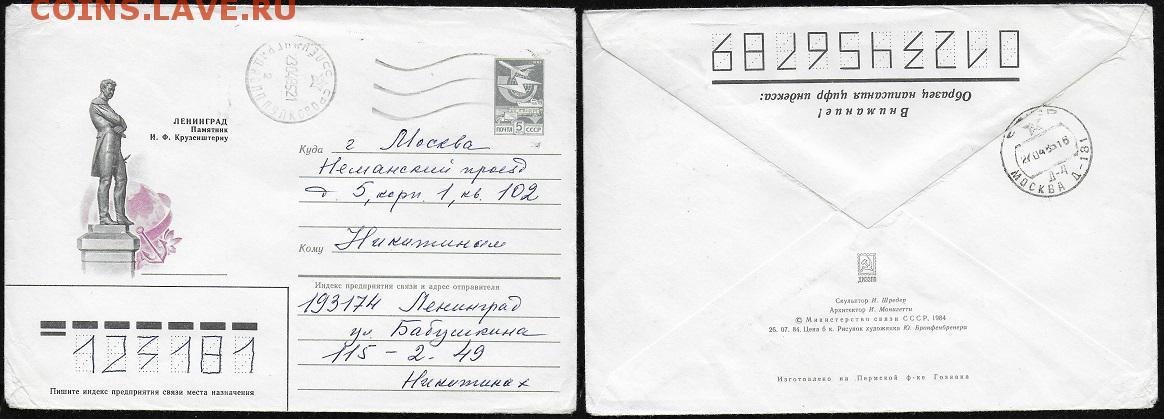 coins.lave.ru
ЛЕНИНГРАД
Памятник
И. Ф. Крузенштерну
ПОЧТА 5 СССР
Куда г Москва
Неманский проезд
д. 5, корп. 1, кв. 102
Кому Никитиным
Индекс предприятия связи и адрес отправителя
193174 Ленинград
ул. Бабушкина
115 - 2 - 49
Никитина х
123181
Пишите индекс предприятия связи места назначения
Внимание!
Образец написания цифр индекса:
0123456789
СССР
МОСКВА Д-181
Скульптор И. Шредер
Архитектор И. Монигетти
© Министерство связи СССР, 1984
26. 07. 84. Цена 6 к. Рисунок художника Ю. Бронфенбренера
Изготовлено на Пермской ф-ке Гознака